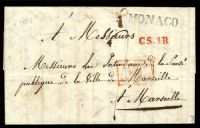 MONACO
à Messieurs
C.S.4R
Messieurs les Intendans de la Santé
publique de la Ville de Marseille
à Marseille